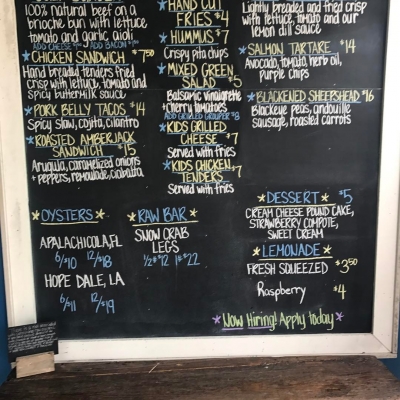 100% natural beef on a
brioche bun with lettuce
tomato and garlic aioli
ADD CHEESE ADD BACON
*CHICKEN SANDWICH* $7.50
Hand breaded tenders fried
crisp with lettuce, tomato and
spicy buttermilk sauce
*PORK BELLY TACOS* $14
Spicy slaw, cojita, cilantro
*ROASTED AMBERJACK
SANDWICH* $15
Arugula, caramelized onions
+ peppers, remoulade, ciabatta
*HAND CUT
FRIES* $4
*HUMMUS* $7
Crispy pita chips
*MIXED GREEN
SALAD* $5
Balsamic vinaigrette
+cherry tomatoes
ADD GRILLED GROUPER $8
*KIDS GRILLED
CHEESE* $7
Served with fries
*KIDS CHICKEN
TENDERS* $7
Served with fries
Lightly breaded and fried crisp
with lettuce, tomato and our
lemon dill sauce
*SALMON TARTARE* $14
Avocado, tomato, herb oil,
purple chips
*BLACKENED SHEEPSHEAD* $16
Blackeye peas, andouille
sausage, roasted carrots
*OYSTERS*
APALACHICOLA, FL
6/$10 12/$18
HOPE DALE, LA
6/$11 12/$19
*RAW BAR*
SNOW CRAB
LEGS
1/2# $12 1# $22
*DESSERT* $5
CREAM CHEESE POUND CAKE,
STRAWBERRY COMPOTE,
SWEET CREAM
*LEMONADE*
FRESH SQUEEZED $3.50
Raspberry $4
*Now Hiring! Apply today*